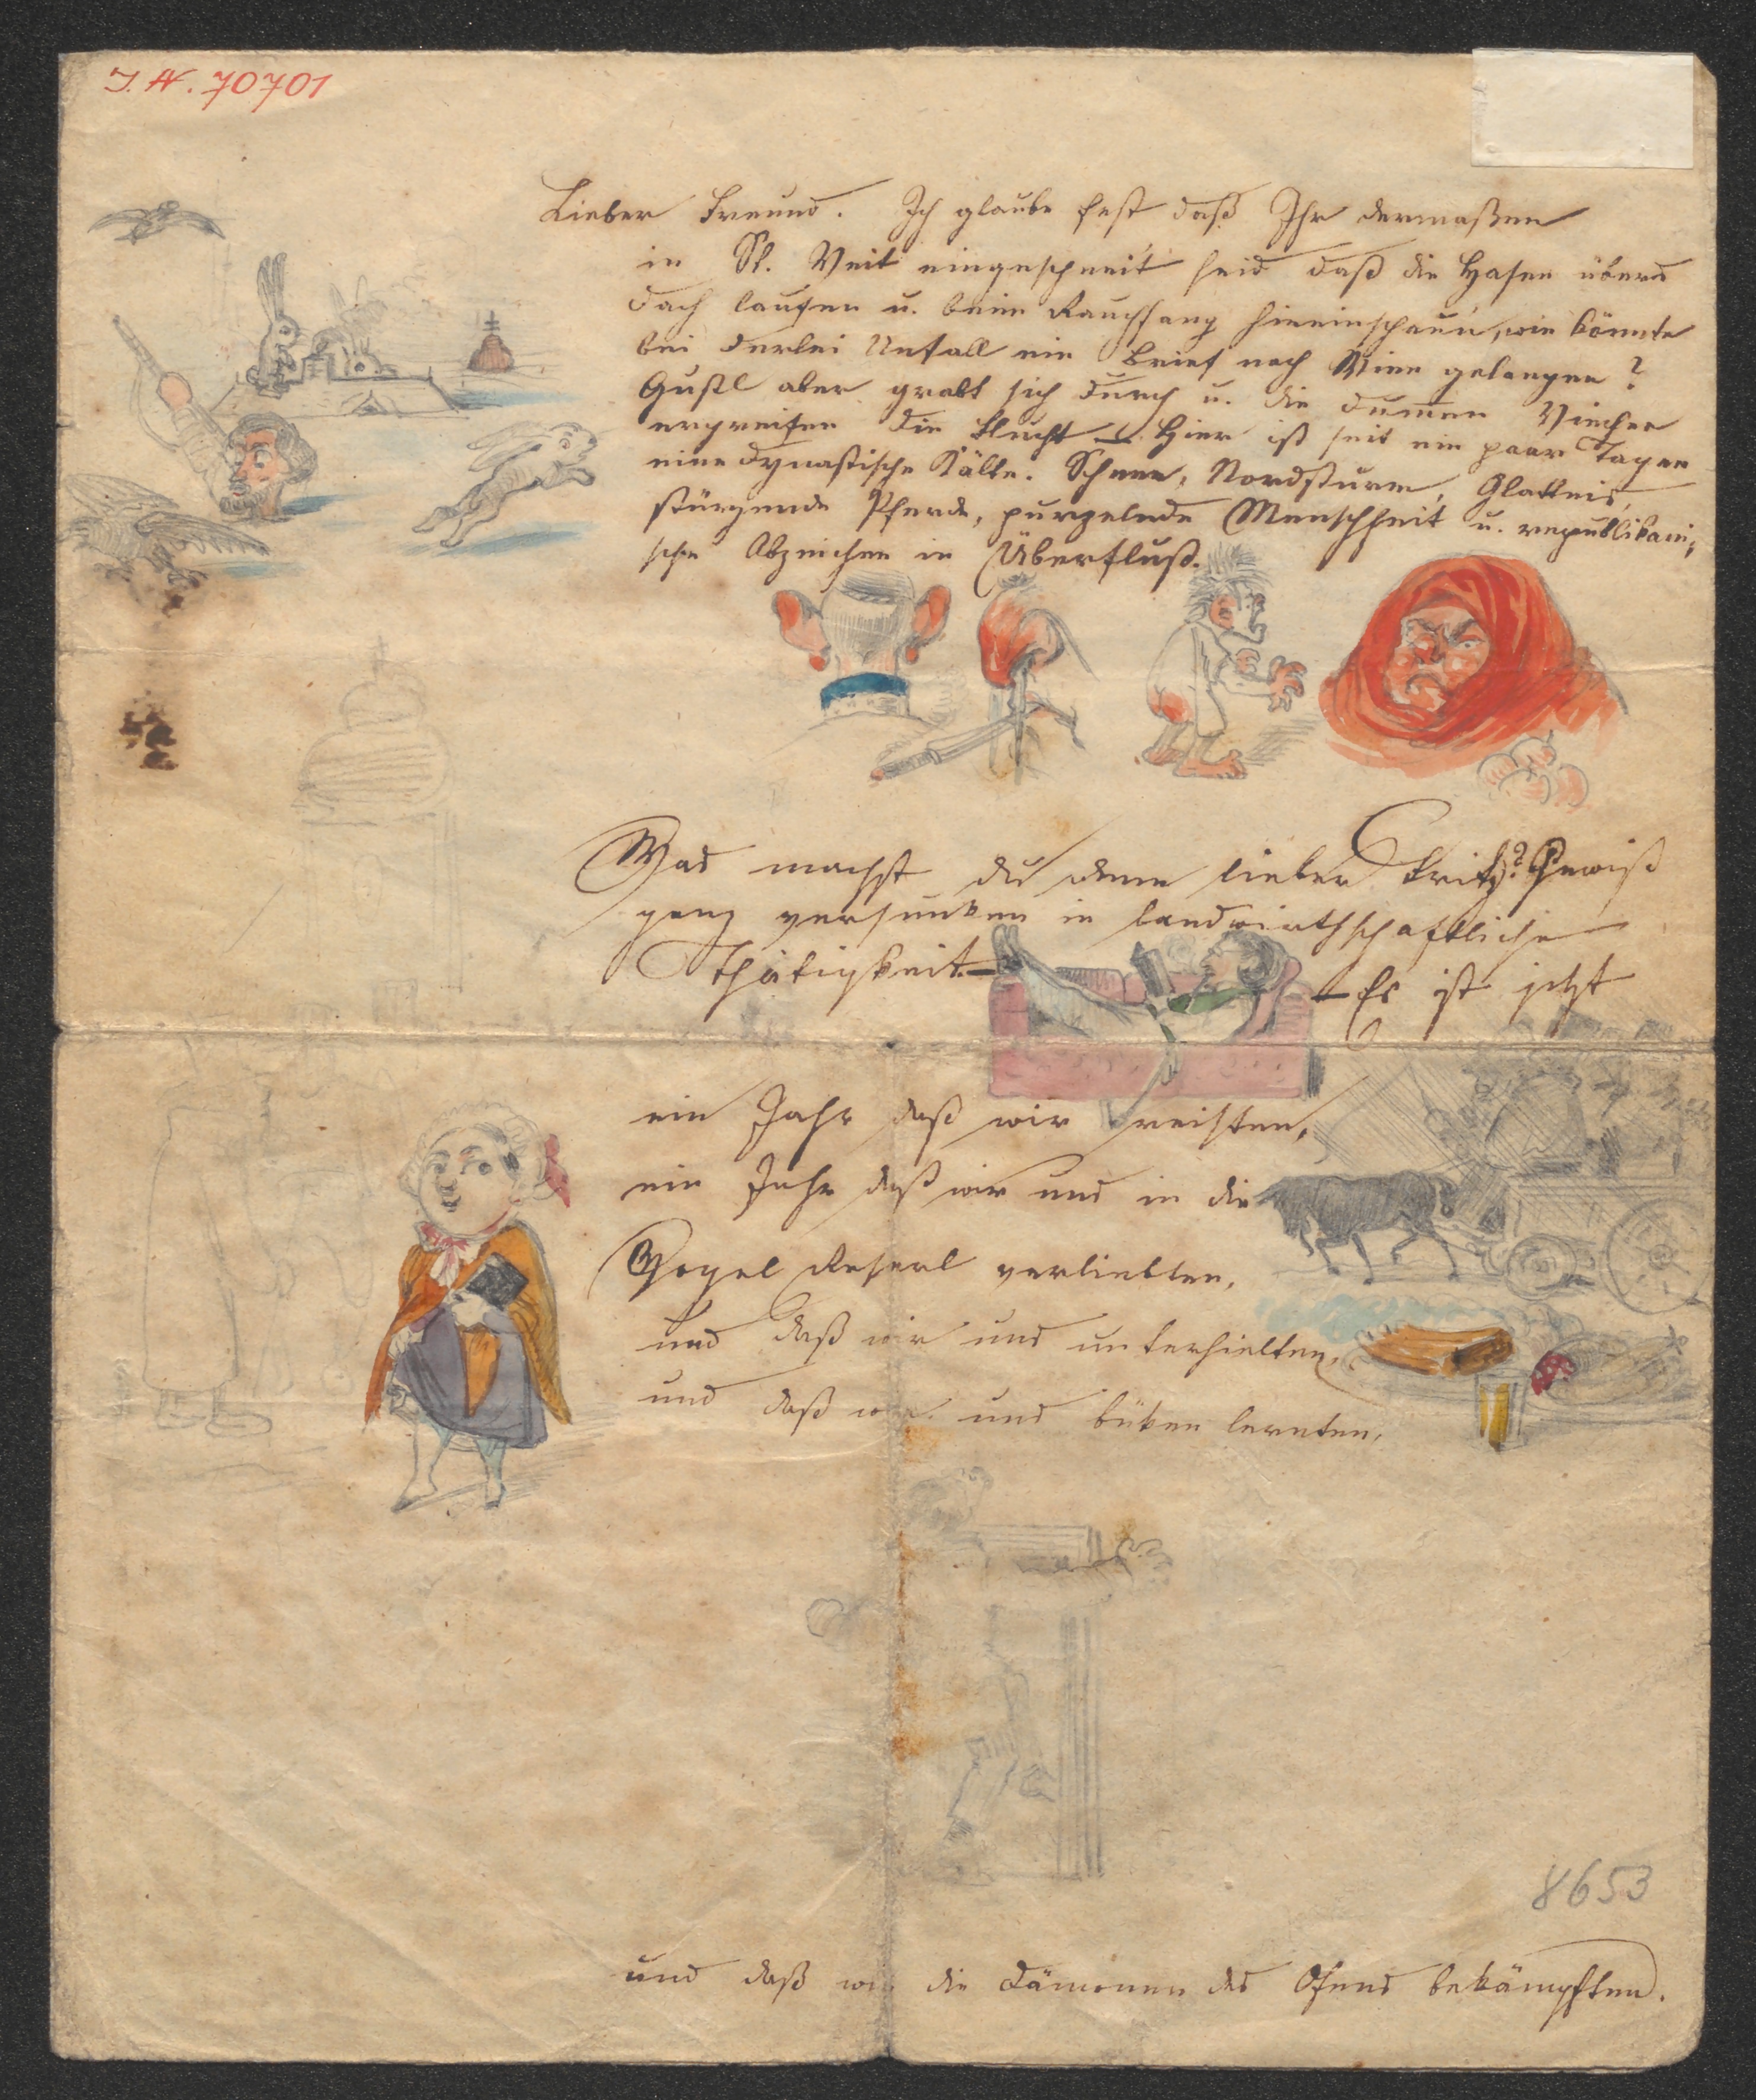 I. N. 70701
Lieber Freund. Ich glaube fest daß Ihr dermaßen
in St. Veit eingeschneit seid daß die Hasen übers
Dach laufen u. beim Rauchfang hineinschaun, wie könnte
bei derlei Unfall ein Brief nach Wien gelangen?
Gustl aber grabt sich durch u. die dummen Viecher
ergreifen die Flucht –. Hier ist seit ein paar Tagen
eine dynastische Kälte. Schnee, Nordsturm, Glatteis,
stürzende Pferde, purzelnde Menschheit u. republikani-
sche Abzeichen in Überfluß.
Was machst du denn lieber Fritz? Gewiß
ganz versunken in landwirthschaftliche
Thätigkeit. – – Es ist jetzt
ein Jahr daß wir reisten,
ein Jahr daß wir uns in die
Vogel Reserl verliebten,
und daß wir uns unterhielten,
und daß wir uns büken lernten,
8653
und daß wir die Dämonen des Ofens bekämpften.